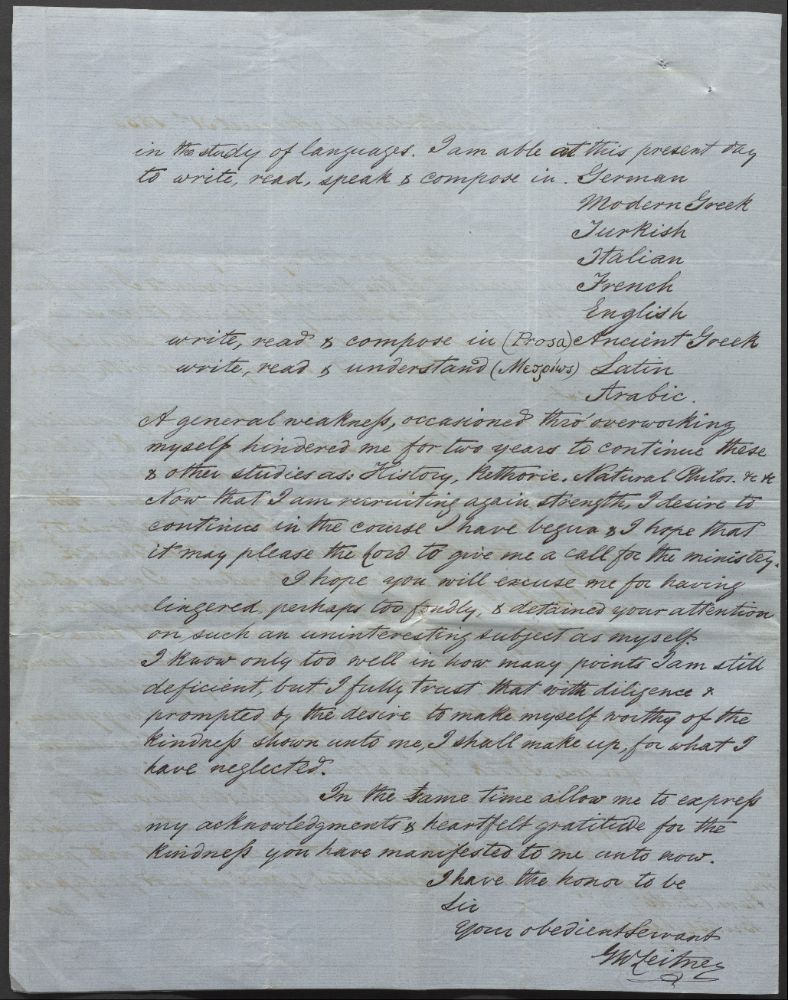 in the study of languages. I am able at this present day
to write, read, speak & compose in. German
Modern Greek
Turkish
Italian
French
English
write, read & compose in (Prosa) Ancient Greek
write, read & understand Latin
Arabic.
A general weakness, occasioned thro' overworking
myself hindered me for two years to continue these
& other studies as: History, Rethoric. Natural Philos. &c &c
Now that I am recruiting again strength, I desire to
continue in the course I have begun & I hope that
it may please the Lord to give me a call for the ministry.
I hope you will excuse me for having
lingered, perhaps too fondly, & detained your attention
on such an uninteresting subject as myself.
I know only too well in how many points I am still
deficient, but I fully trust that with diligence &
prompted by the desire to make myself worthy of the
kindness shown unto me, I shall make up, for what I
have neglected.
In the same time allow me to express
my acknowledgments & heartfelt gratitude for the
kindness you have manifested to me unto now.
I have the honor to be
Sir
Your obedient Servant
GWLeitner